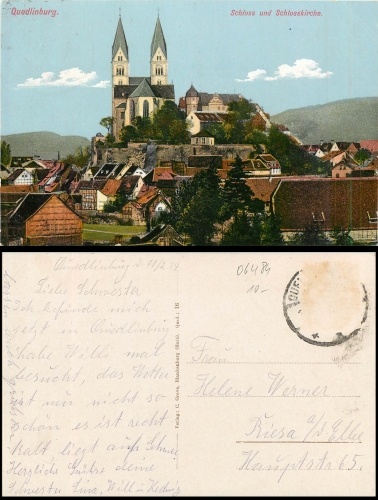 Quedlinburg.
Schloss und Schlosskirche.
Quedlinburg d. 11/2 24
Liebe Schwester
Ich befinde mich
jetzt in Quedlinburg
habe Willi mal
besucht, das Wetter
ist nur nicht so
schön es ist recht
kalt liegt auch Schnee
Herzliche Grüße deine
Schwester Lina, Willi u. Hedwig
Verlag: C. Goern, Magdeburg
06484
10.-
QUE
Frau
Helene Werner
Riesa a/d Elbe
Hauptstr 65.